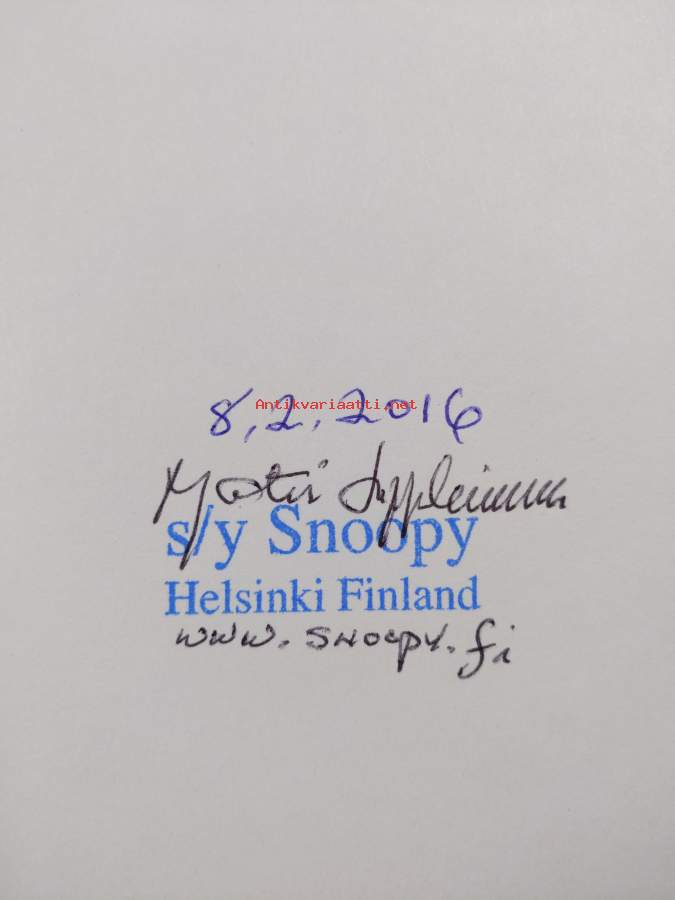 8.2.2016
Antikvariaatti.net
s/y Snoopy
Helsinki Finland
www.snoopy.fi